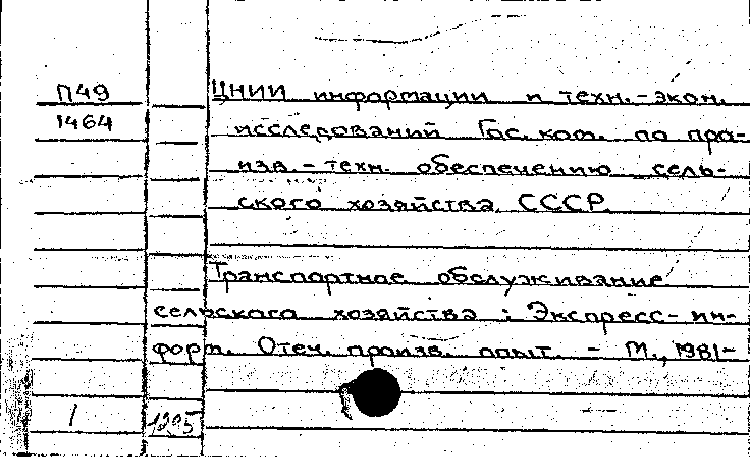 П49
1464
ЦНИИ информации и техн.-экон.
исследований Гос. ком. по про-
изв.-техн. обеспечению сель-
ского хозяйства СССР.
Транспортное обслуживание
сельского хозяйства : Экспресс-ин-
форм. Отеч. произв. опыт. - М., 1981-
1 1295